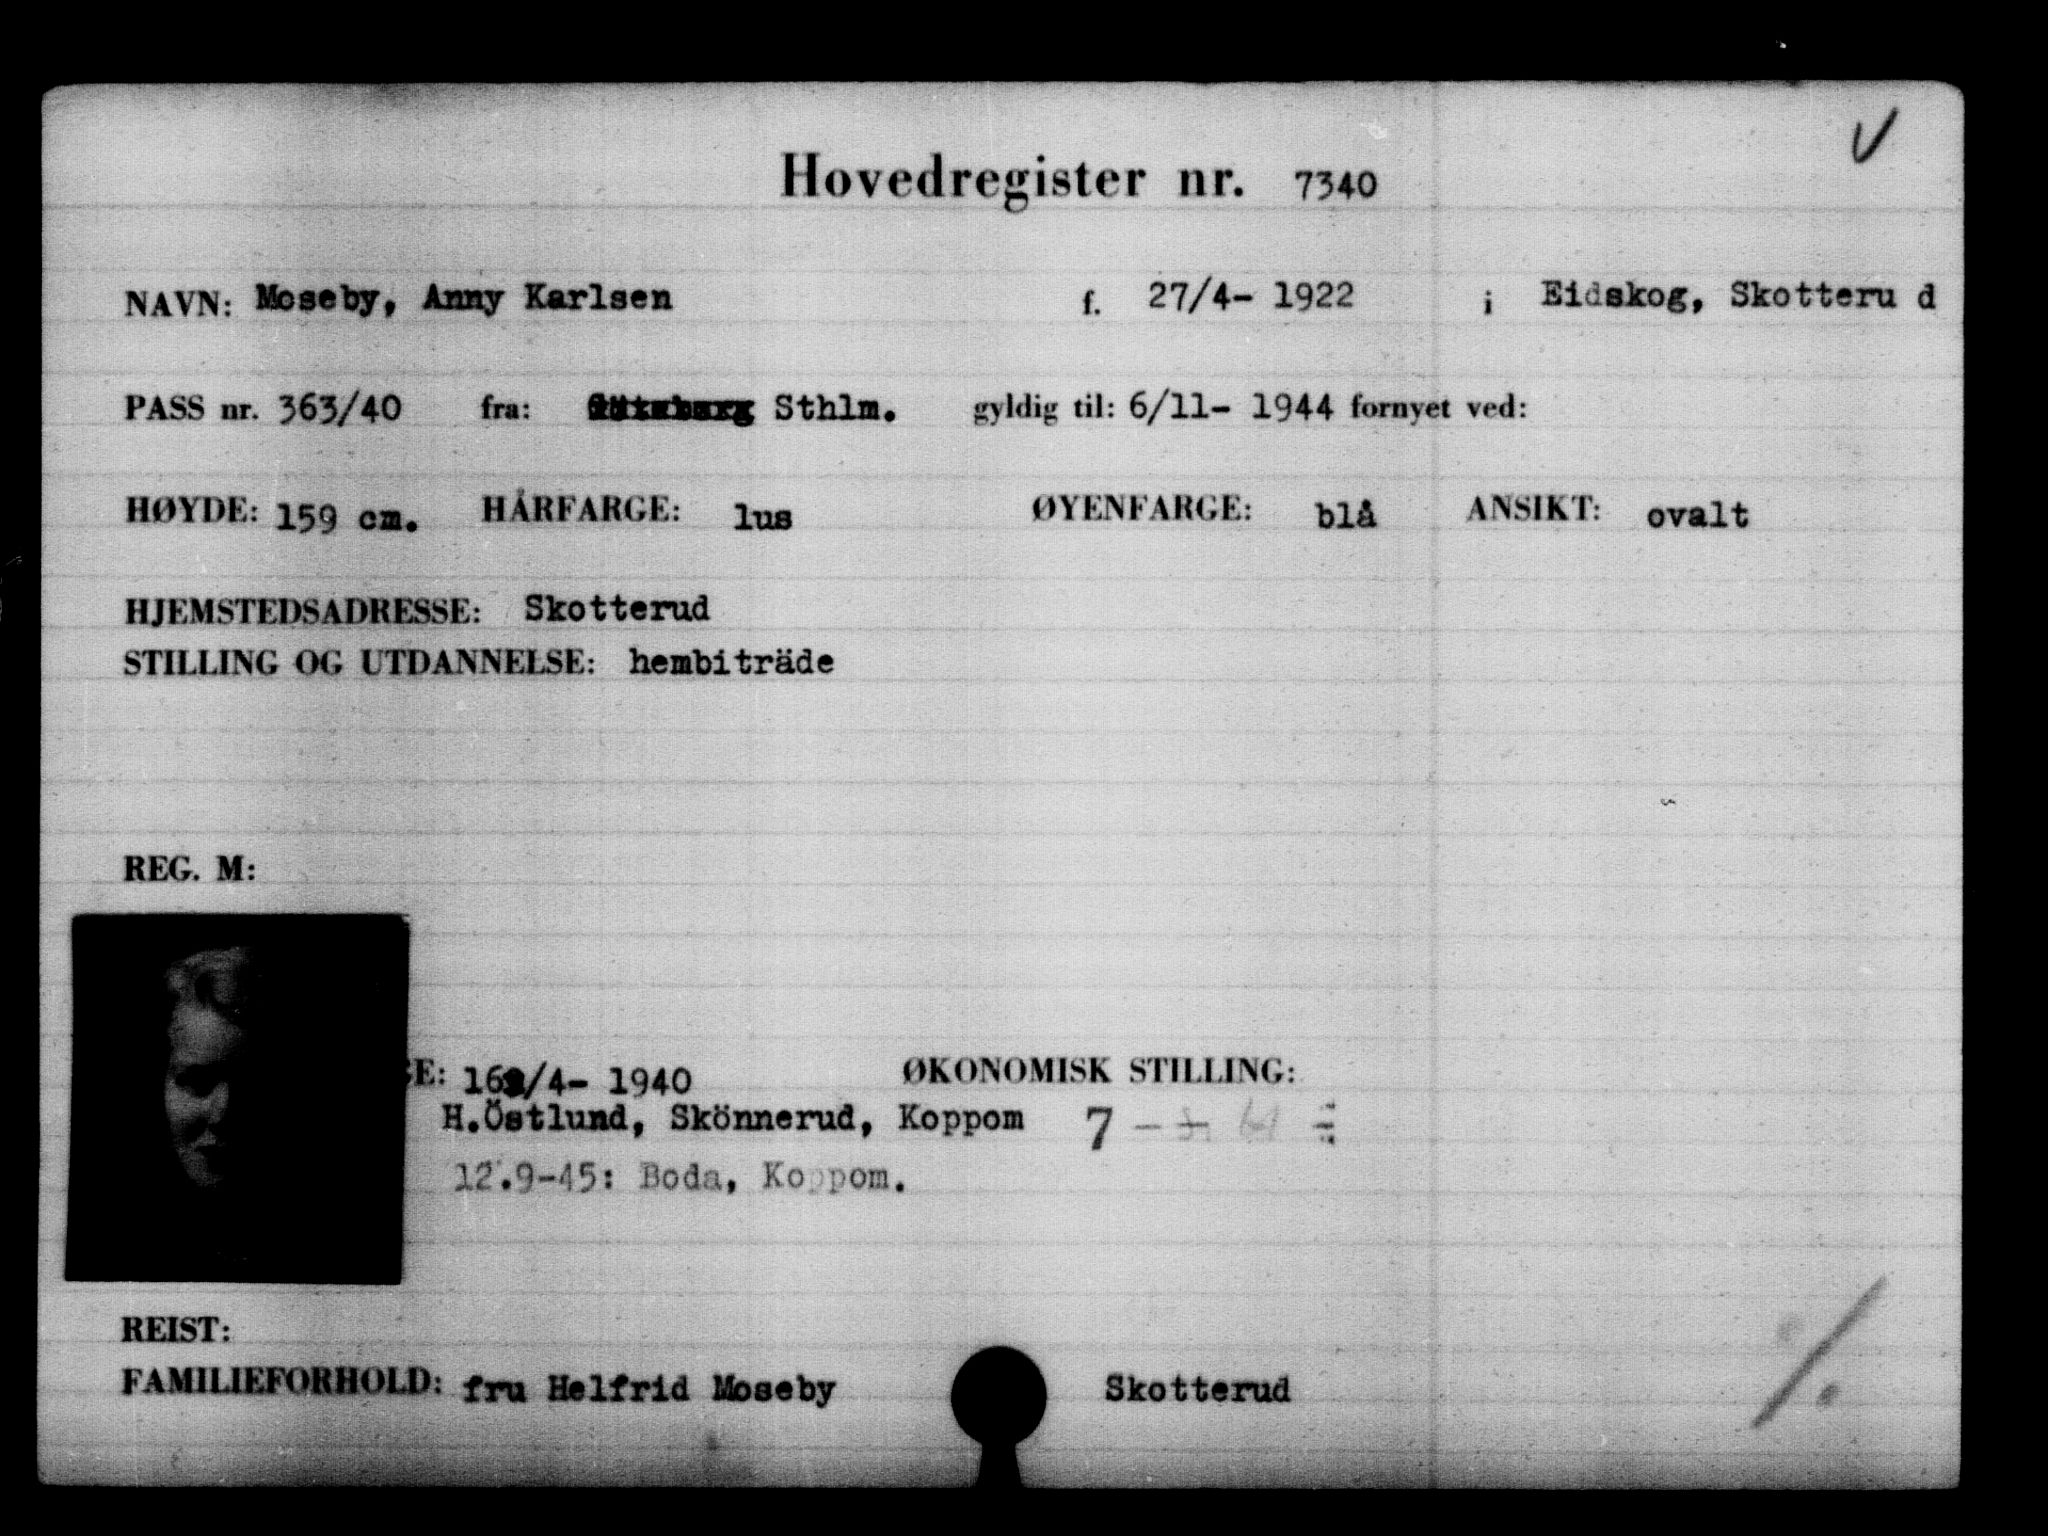 Hovedregister nr. 7340
NAVN: Moseby, Anny Karlsen f. 27/4- 1922 i Eidskog, Skotteru d
PASS nr. 363/40 fra: Sthlm. gyldig til: 6/11- 1944 fornyet ved:
HØYDE: 159 cm. HÅRFARGE: lus ØYENFARGE: blå ANSIKT: ovalt
HJEMSTEDSADRESSE: Skotterud
STILLING OG UTDANNELSE: hembiträde
REG. M:
E: /4- 1940 ØKONOMISK STILLING:
H.Östlund, Skönnerud, Koppom 7
12.9-45: Boda, Koppom.
REIST:
FAMILIEFORHOLD: fru Helfrid Moseby Skotterud